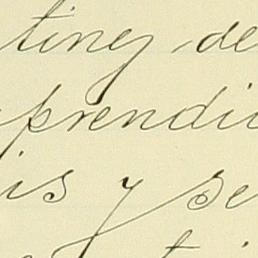 tiney de
prendi
is y se